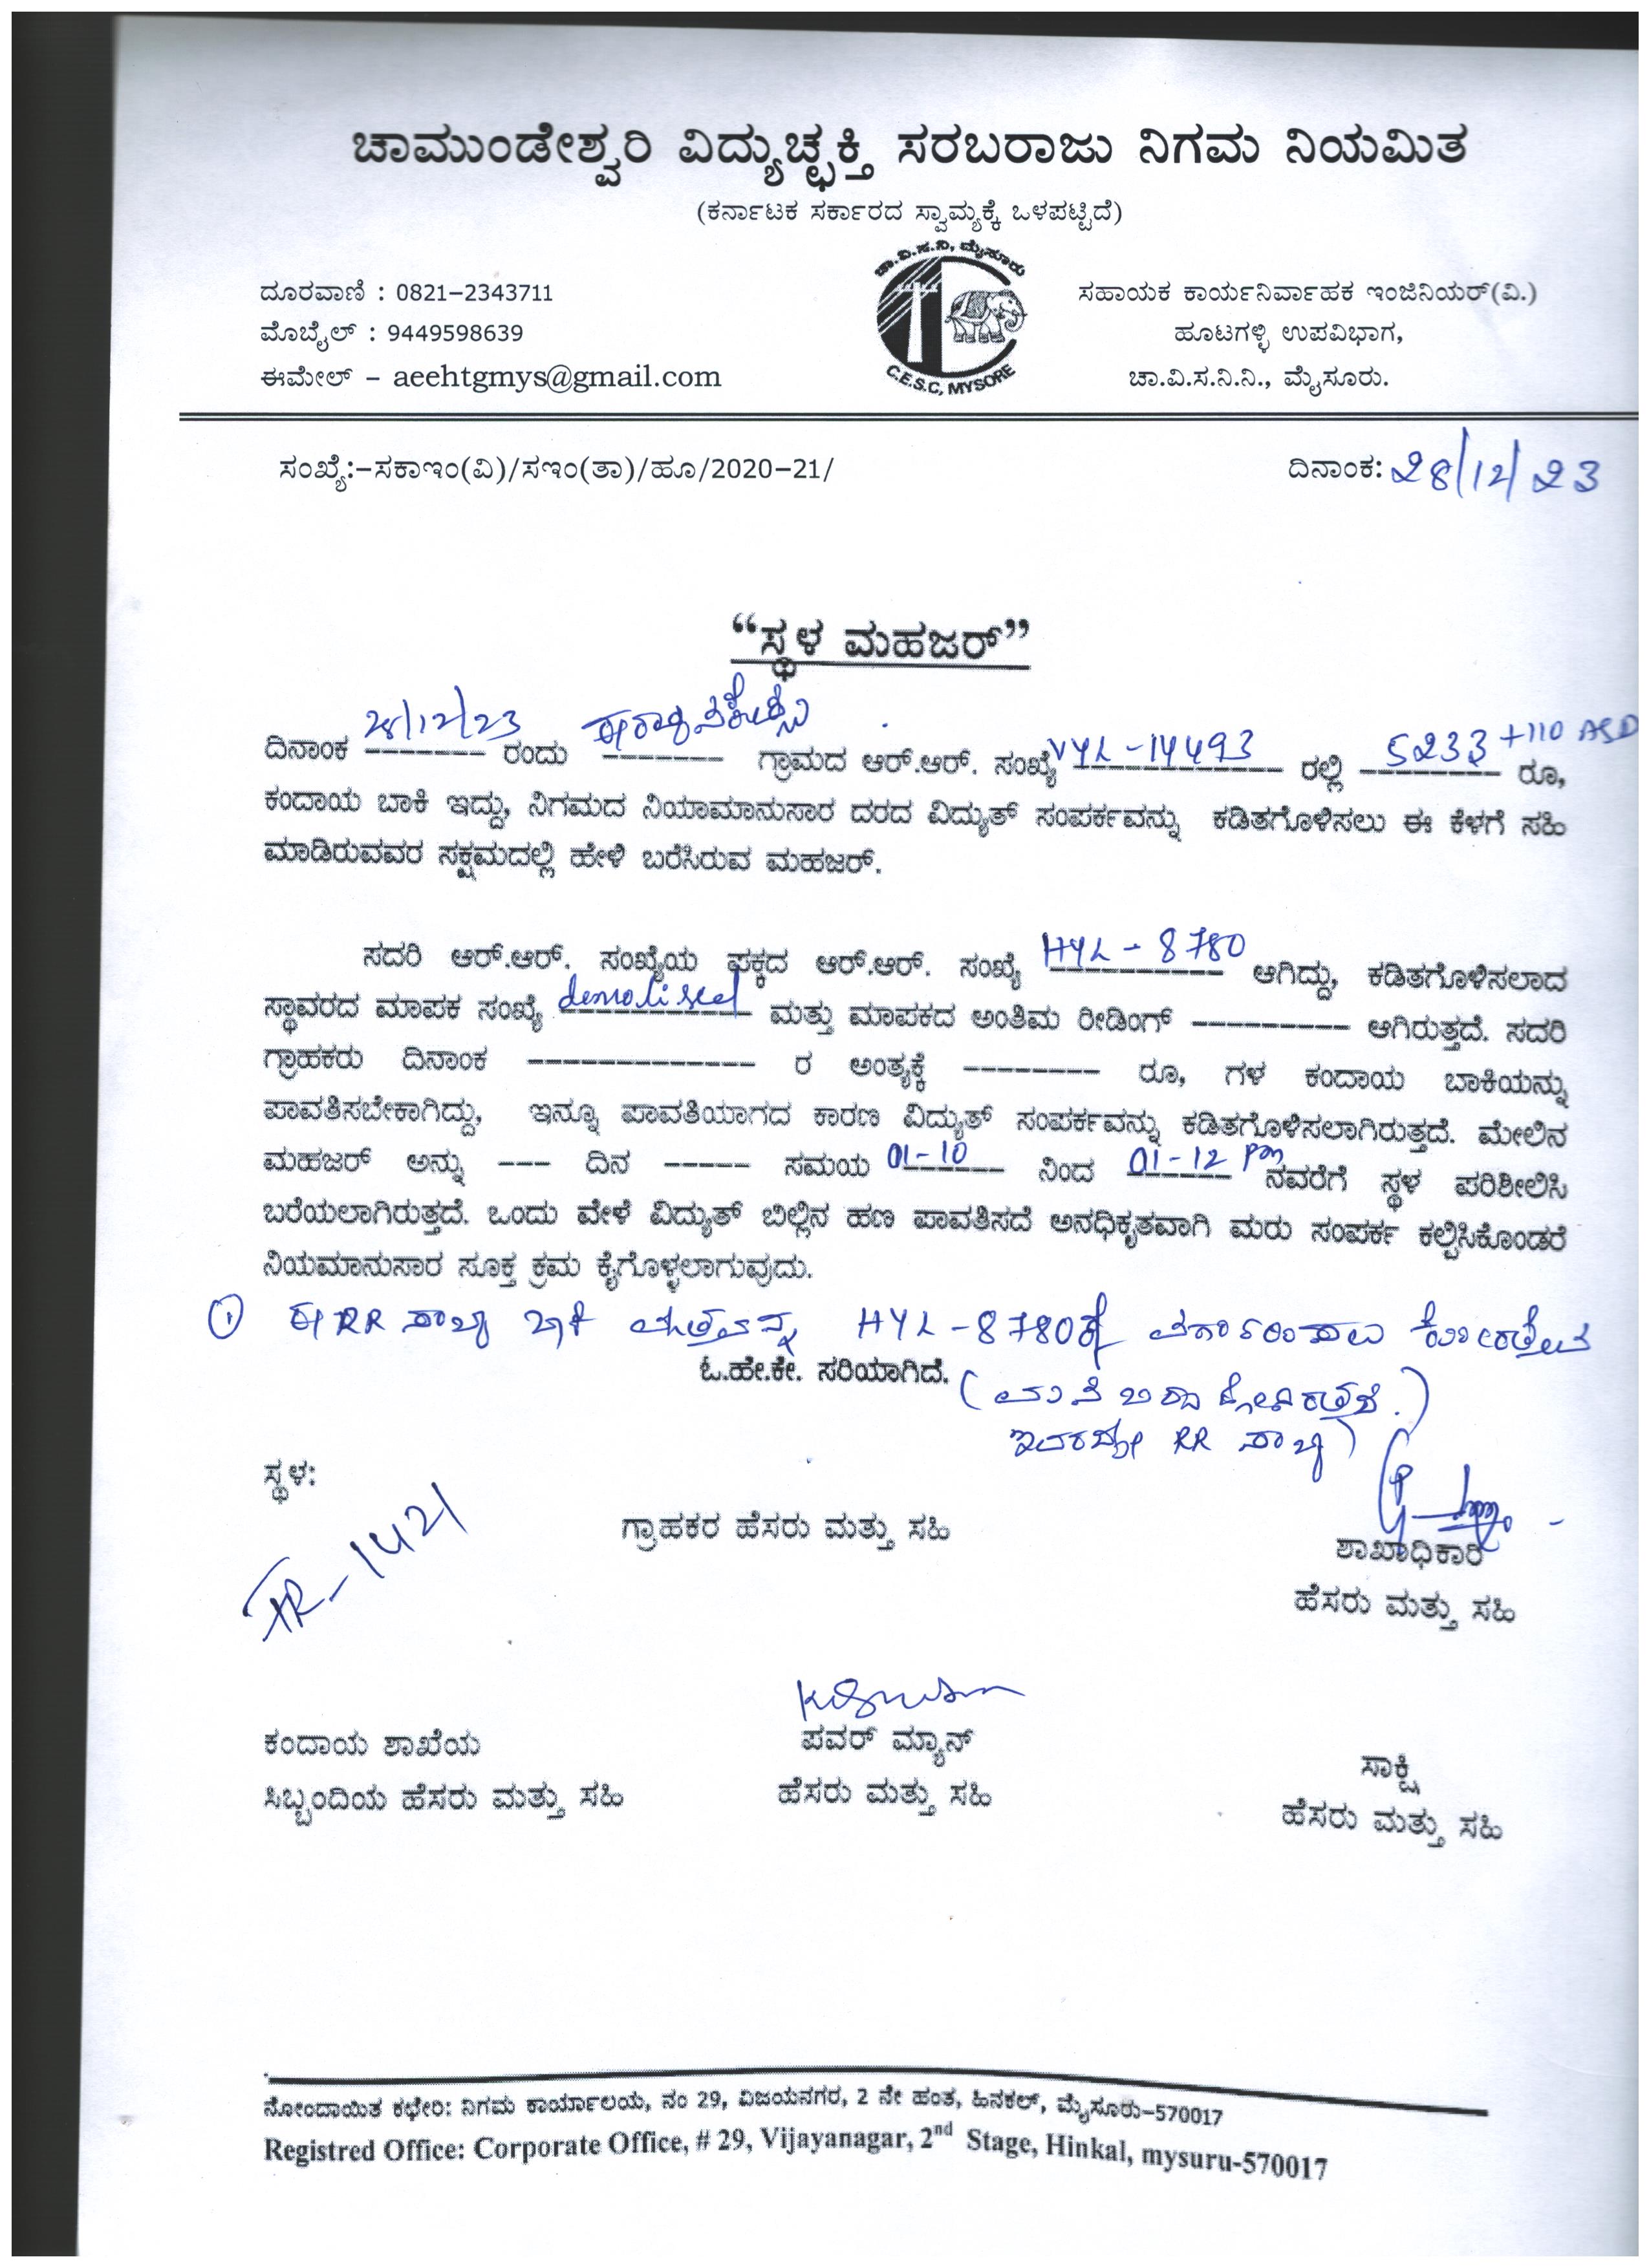 ಚಾಮುಂಡೇಶ್ವರಿ ವಿದ್ಯುಚ್ಛಕ್ತಿ ಸರಬರಾಜು ನಿಗಮ ನಿಯಮಿತ
(ಕರ್ನಾಟಕ ಸರ್ಕಾರದ ಸ್ವಾಮ್ಯಕ್ಕೆ ಒಳಪಟ್ಟಿದೆ)
ದೂರವಾಣಿ : 0821-2343711
ಮೊಬೈಲ್ : 9449598639
ಈಮೇಲ್ - aeehtgmys@gmail.com
ಚಾ.ವಿ.ಸ.ನಿ, ಮೈಸೂರು
C.E.S.C, MYSORE
ಸಹಾಯಕ ಕಾರ್ಯನಿರ್ವಾಹಕ ಇಂಜಿನಿಯರ್(ವಿ.)
ಹೂಟಗಳ್ಳಿ ಉಪವಿಭಾಗ,
ಚಾ.ವಿ.ಸ.ನಿ.ನಿ., ಮೈಸೂರು.
ಸಂಖ್ಯೆ:-ಸಕಾಇಂ(ವಿ)/ಸಇಂ(ತಾ)/ಹೂ/2020-21/ ದಿನಾಂಕ: 28/12/23
“ಸ್ಥಳ ಮಹಜರ್”
ದಿನಾಂಕ 28/12/23 ರಂದು ------- ಗ್ರಾಮದ ಆರ್.ಆರ್. ಸಂಖ್ಯೆ VYL-14493 ರಲ್ಲಿ 5233 +110 ASD ರೂ,
ಕಂದಾಯ ಬಾಕಿ ಇದ್ದು, ನಿಗಮದ ನಿಯಾಮಾನುಸಾರ ದರದ ವಿದ್ಯುತ್ ಸಂಪರ್ಕವನ್ನು ಕಡಿತಗೊಳಿಸಲು ಈ ಕೆಳಗೆ ಸಹಿ
ಮಾಡಿರುವವರ ಸಕ್ಷಮದಲ್ಲಿ ಹೇಳಿ ಬರೆಸಿರುವ ಮಹಜರ್.
ಸದರಿ ಆರ್.ಆರ್. ಸಂಖ್ಯೆಯ ಪಕ್ಕದ ಆರ್.ಆರ್. ಸಂಖ್ಯೆ HYL-8780 ಆಗಿದ್ದು, ಕಡಿತಗೊಳಿಸಲಾದ
ಸ್ಥಾವರದ ಮಾಪಕ ಸಂಖ್ಯೆ demolised ಮತ್ತು ಮಾಪಕದ ಅಂತಿಮ ರೀಡಿಂಗ್ --------- ಆಗಿರುತ್ತದೆ. ಸದರಿ
ಗ್ರಾಹಕರು ದಿನಾಂಕ ------------- ರ ಅಂತ್ಯಕ್ಕೆ -------- ರೂ, ಗಳ ಕಂದಾಯ ಬಾಕಿಯನ್ನು
ಪಾವತಿಸಬೇಕಾಗಿದ್ದು, ಇನ್ನೂ ಪಾವತಿಯಾಗದ ಕಾರಣ ವಿದ್ಯುತ್ ಸಂಪರ್ಕವನ್ನು ಕಡಿತಗೊಳಿಸಲಾಗಿರುತ್ತದೆ. ಮೇಲಿನ
ಮಹಜರ್ ಅನ್ನು --- ದಿನ ----- ಸಮಯ 01-10 ನಿಂದ 01-12 pm ನವರೆಗೆ ಸ್ಥಳ ಪರಿಶೀಲಿಸಿ
ಬರೆಯಲಾಗಿರುತ್ತದೆ. ಒಂದು ವೇಳೆ ವಿದ್ಯುತ್ ಬಿಲ್ಲಿನ ಹಣ ಪಾವತಿಸದೆ ಅನಧಿಕೃತವಾಗಿ ಮರು ಸಂಪರ್ಕ ಕಲ್ಪಿಸಿಕೊಂಡರೆ
ನಿಯಮಾನುಸಾರ ಸೂಕ್ತ ಕ್ರಮ ಕೈಗೊಳ್ಳಲಾಗುವುದು.
① ಈ RR ಸಂಖ್ಯೆ ಬಾಕಿ ಮೊತ್ತವನ್ನು HYL-8780ಕ್ಕೆ ವರ್ಗಾಯಿಸಲು ಕೋರುತ್ತೇವೆ
ಓ.ಹೇ.ಕೇ. ಸರಿಯಾಗಿದೆ.
RR ಸಂಖ್ಯೆ)
ಸ್ಥಳ:
TR-1421
ಗ್ರಾಹಕರ ಹೆಸರು ಮತ್ತು ಸಹಿ
ಶಾಖಾಧಿಕಾರಿ
ಹೆಸರು ಮತ್ತು ಸಹಿ
ಕಂದಾಯ ಶಾಖೆಯ ಪವರ್ ಮ್ಯಾನ್ ಸಾಕ್ಷಿ
ಸಿಬ್ಬಂದಿಯ ಹೆಸರು ಮತ್ತು ಸಹಿ ಹೆಸರು ಮತ್ತು ಸಹಿ ಹೆಸರು ಮತ್ತು ಸಹಿ
ನೋಂದಾಯಿತ ಕಛೇರಿ: ನಿಗಮ ಕಾರ್ಯಾಲಯ, ನಂ 29, ವಿಜಯನಗರ, 2 ನೇ ಹಂತ, ಹಿನಕಲ್, ಮೈಸೂರು-570017
Registred Office: Corporate Office, # 29, Vijayanagar, 2nd Stage, Hinkal, mysuru-570017